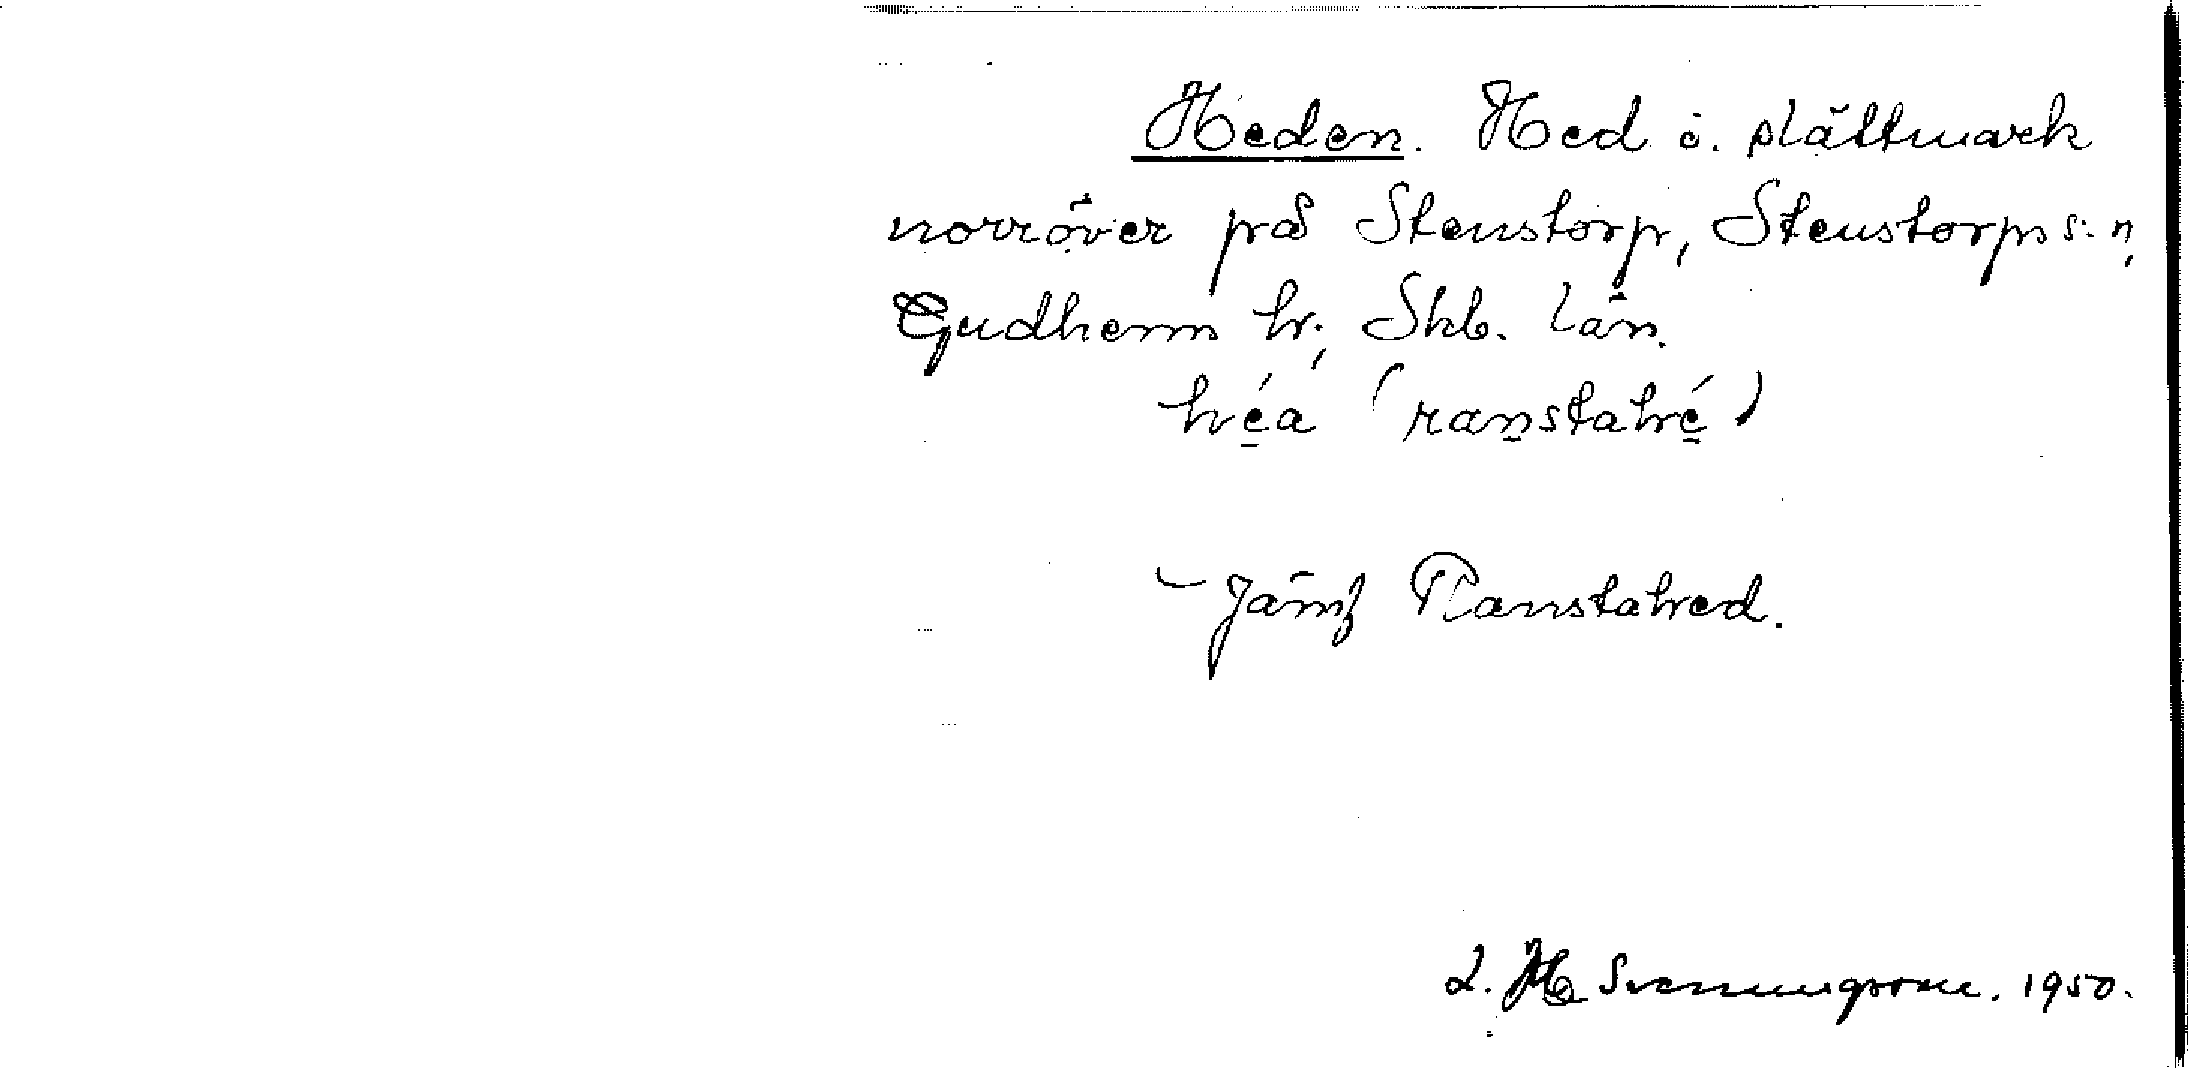 Heden. Hed i. slättmark
norröver på Stenstorp, Stenstorps s:n,
Gudhems hr; Skb. län.
héa (ranstahé)
Jämf Ranstahed.
L. H. Svenungsson. 1950.